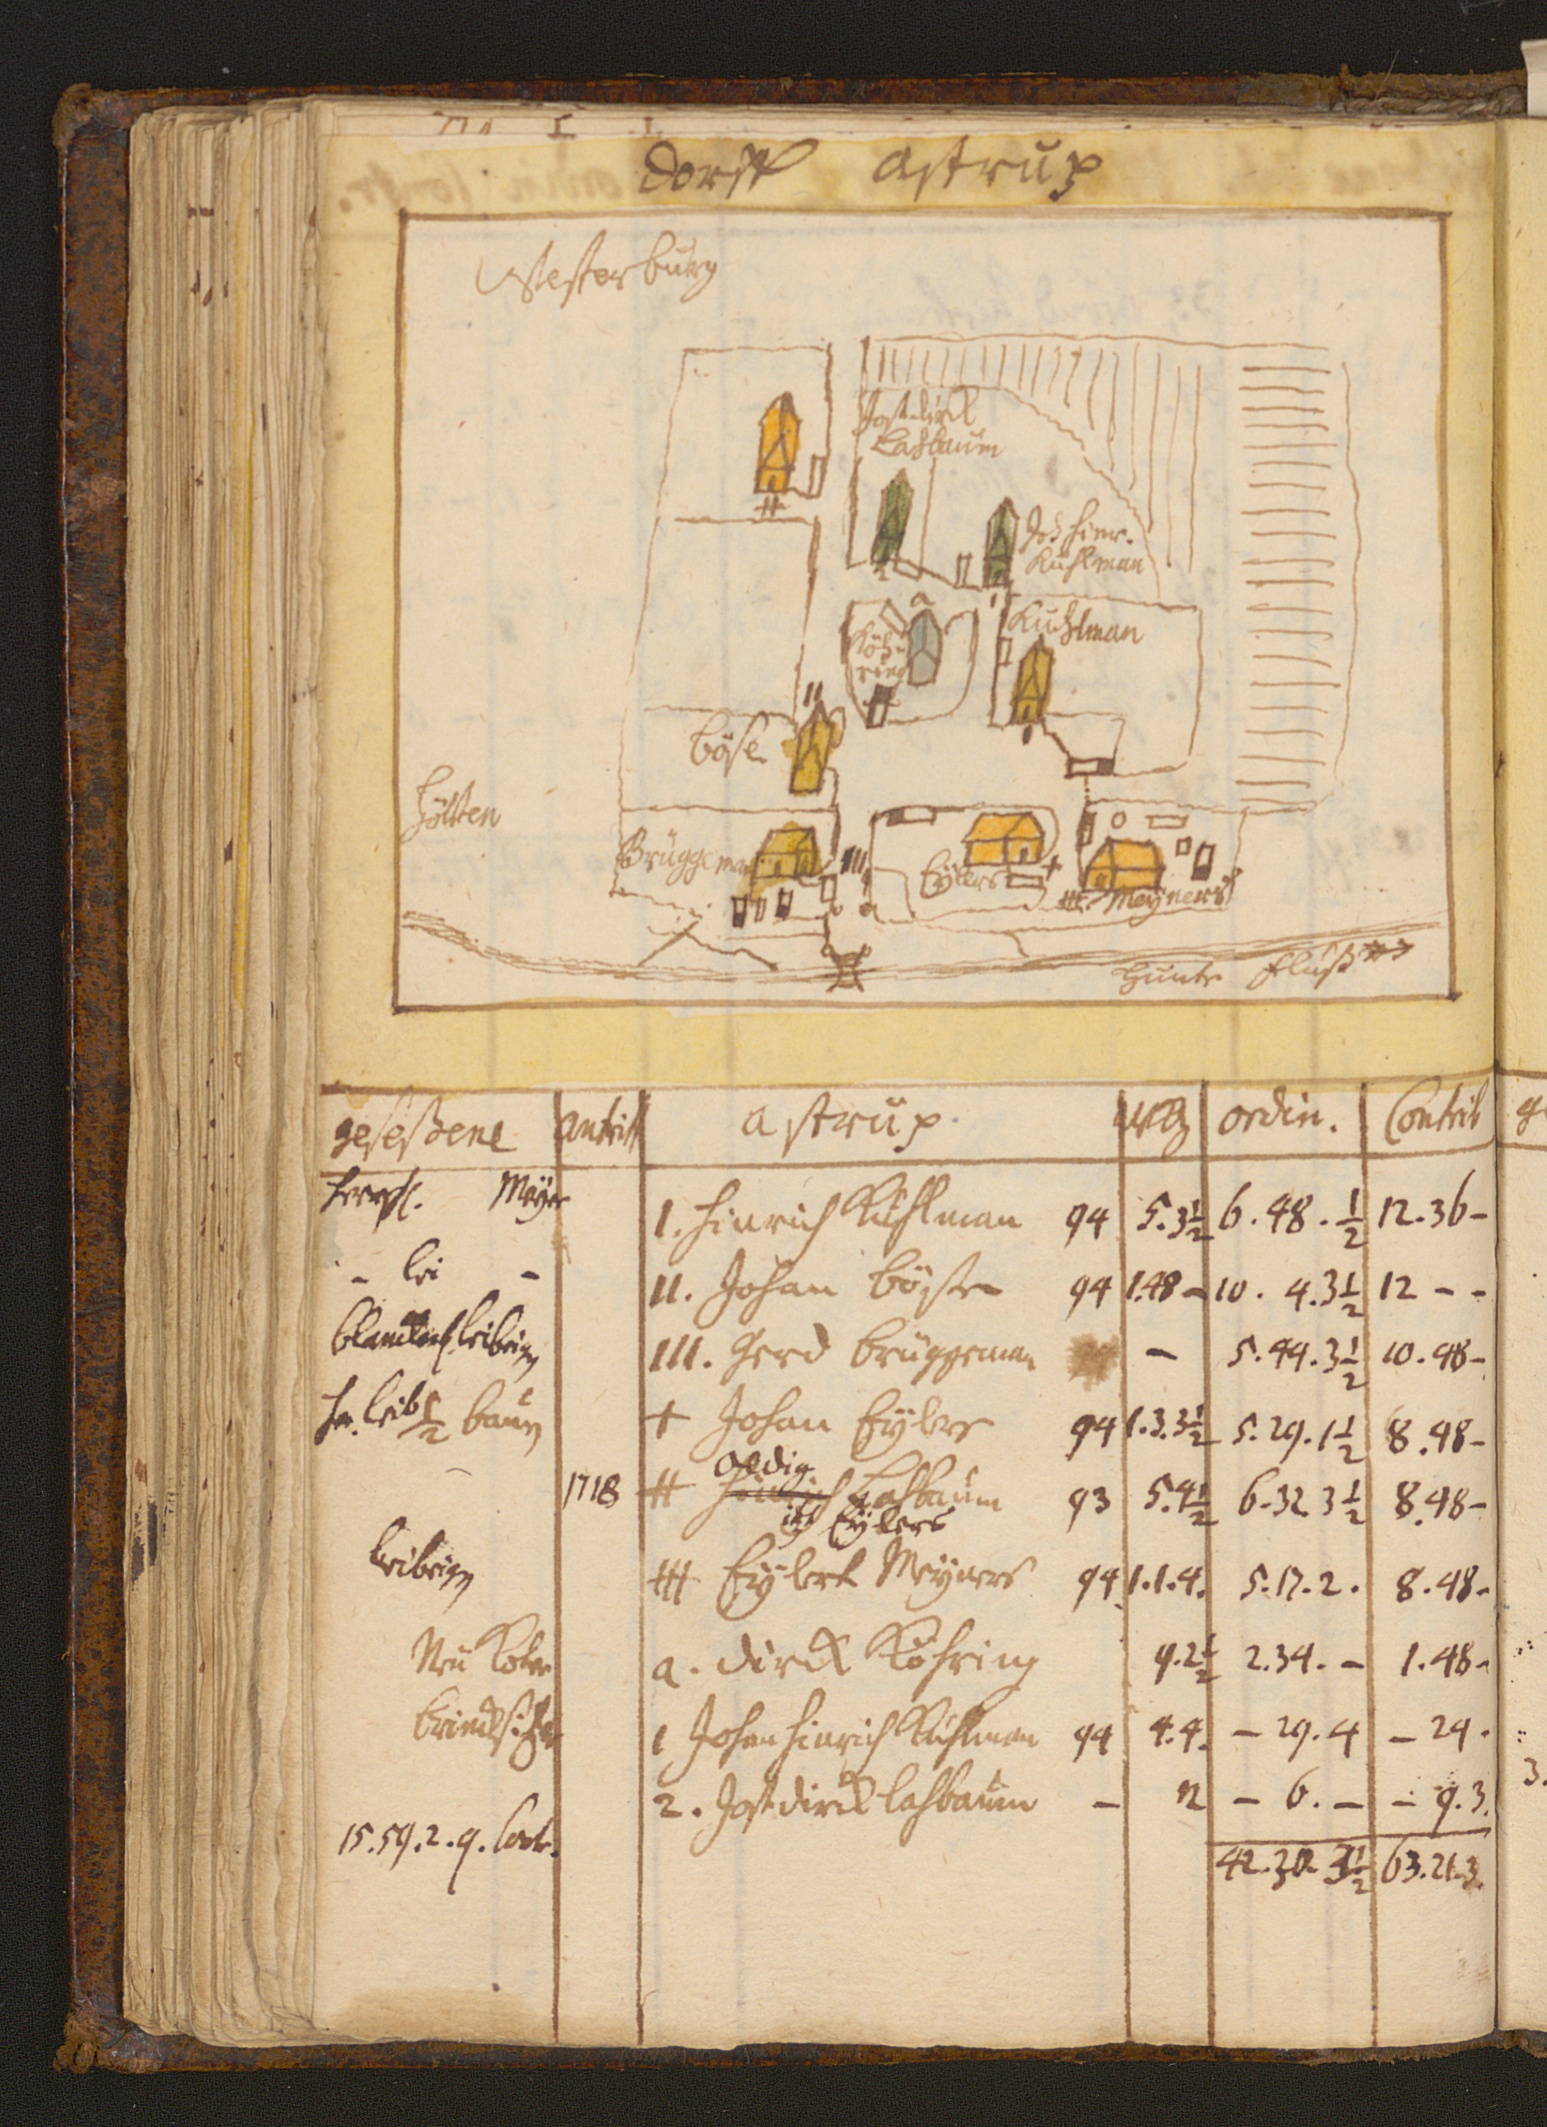 Dorff Astrup
Westerburg
Jost dirck
Lahbaum
Joh hinr.
Kuhlman
Kuhlman
Köh-
ring
Böse
Hölten
Brüggeman
Eÿlers
Meÿners
Hunte Fluß
geseßene antritt Astrup. ordin. Contrib
Meÿer I. Hinrich Kuhlman 94 5.3½ 6.48.½ 12.36-
- lei - II. Johan Böse 94 1.48- 10. 4.3½ 12 - -
leibeigen III. Gerd Brüggeman - 5.44.3½ 10.48-
leib ½ bauer + Johan Eÿlers 94 1.3.3½ 5.29.1½ 8.48-
Oldig
1718 ++ Hinrich Lahbaum 93 5.4½ 6.32 3½ 8.48-
itz Eÿlers
leibeigen +++ Eÿlert Meÿners 94 1.1.4. 5.17.2. 8.48-
Neu Köter a. dirck Köhring 9.2½ 2.34.- 1.48-
Brincksitzer 1 Johan Hinrich Kuhlman 94 4.4. - 29.4 - 24.
2. Jost dirck Lahbaum - 12 - 6. - - 9.3.
15.59.2.9. Cont. 42.30 3½ 63.21.3.